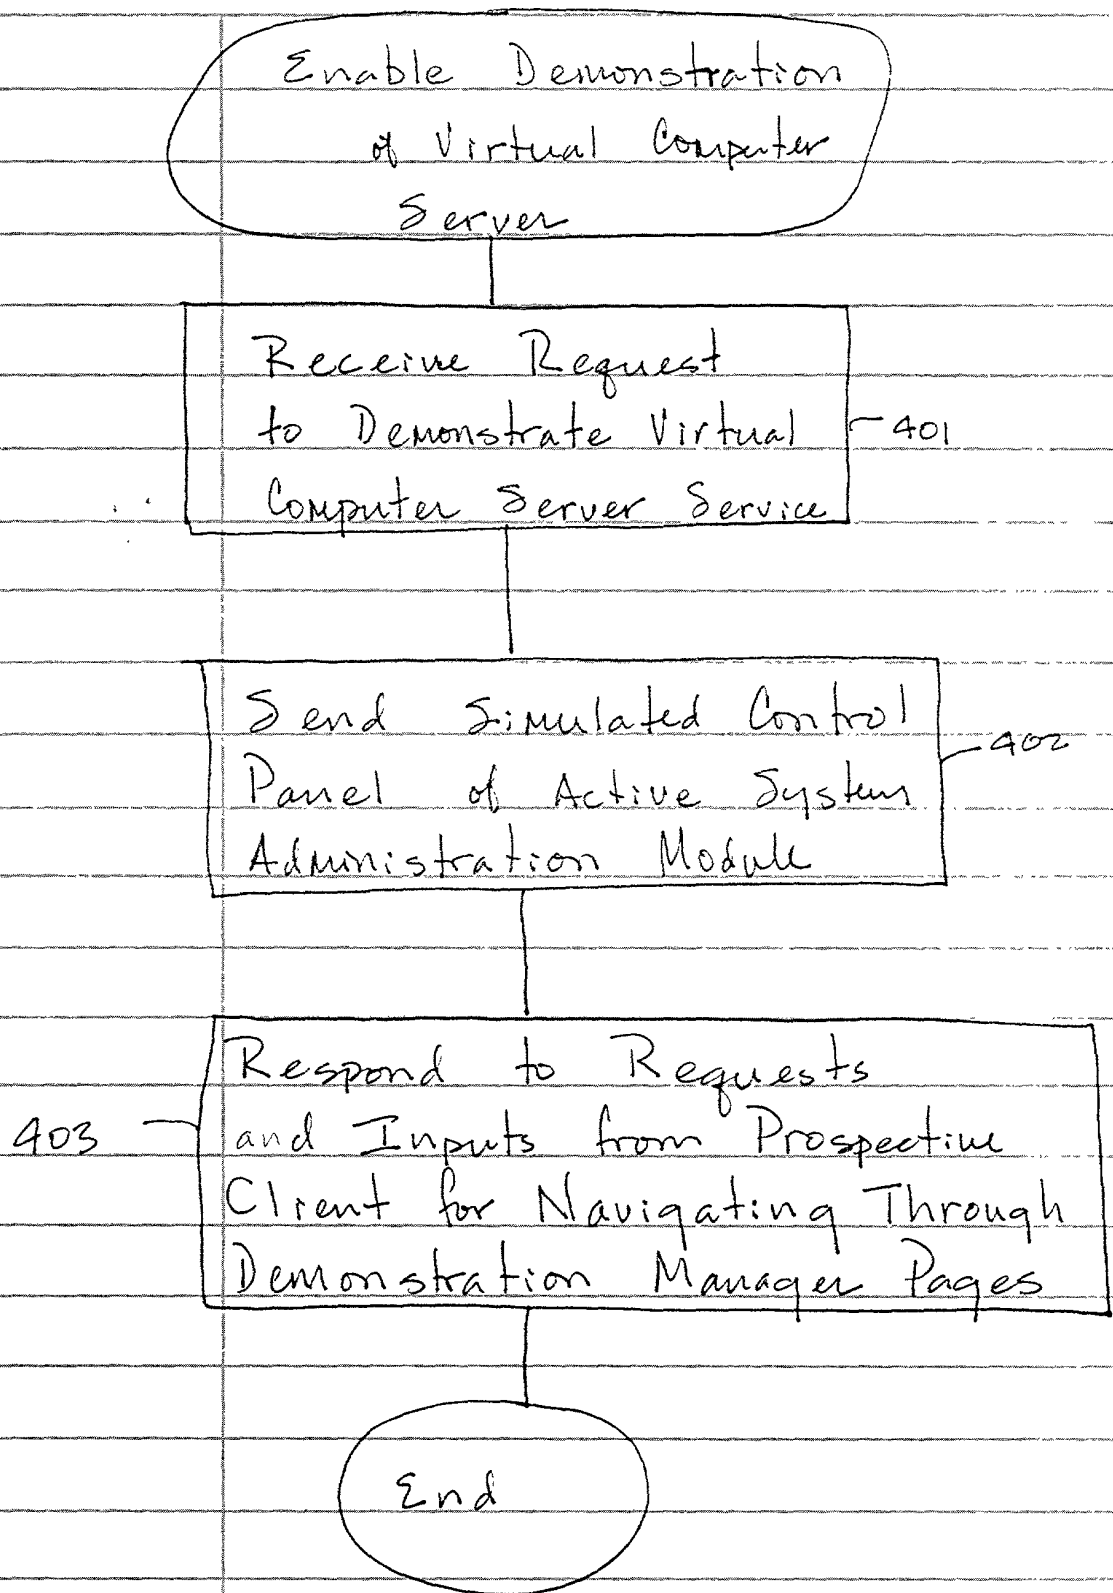 Enable Demonstration
of Virtual Computer
Server
Receive Request
to Demonstrate Virtual
401
Computer Server Service
Send Simulated Control
402
Panel of Active System
Administration Module
Respond to Requests
403
and Inputs from Prospective
Client for Navigating Through
Demonstration Manager Pages
End